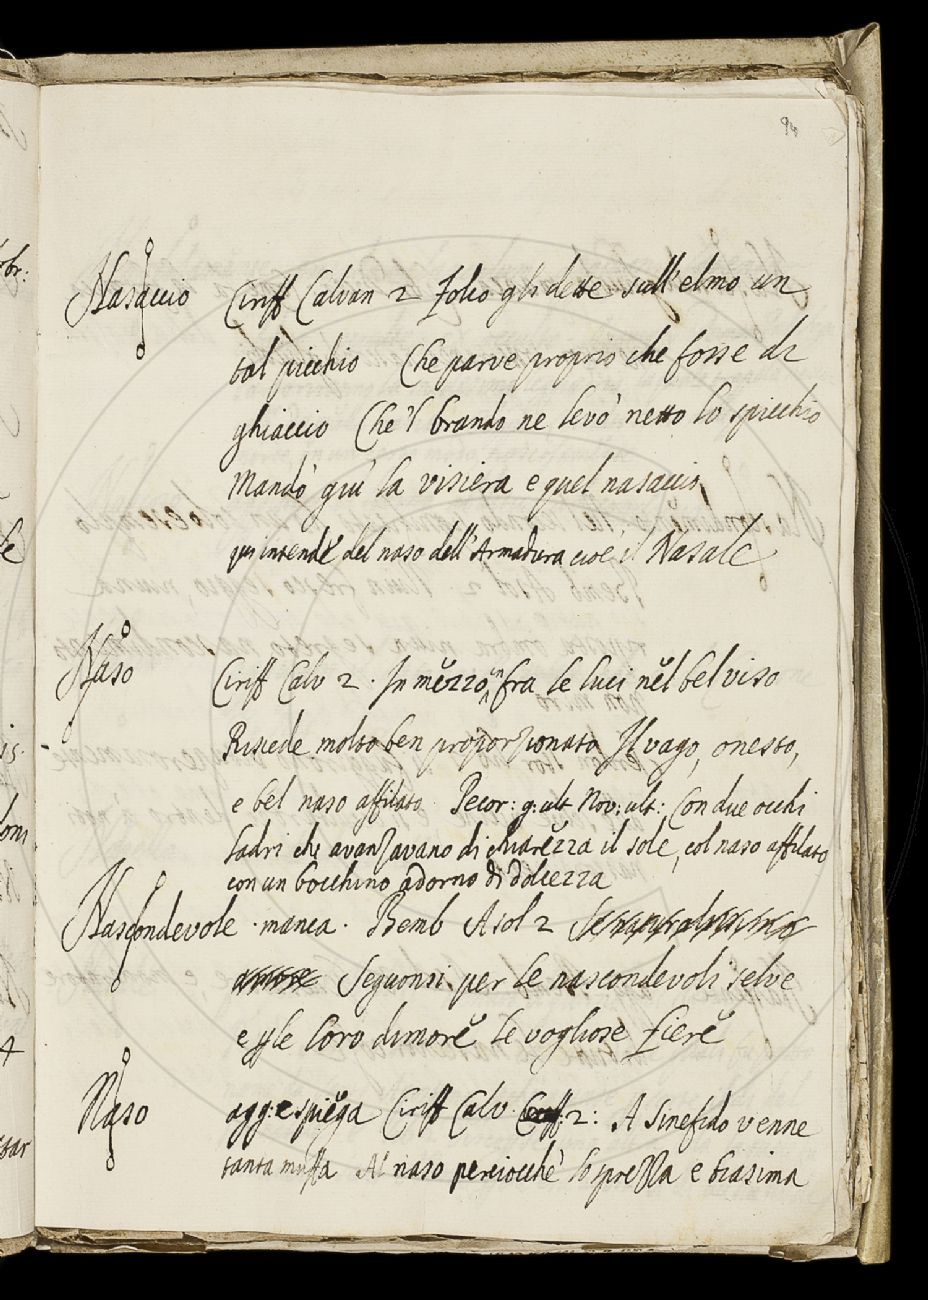 Nasaccio Ciriff Calvan 2 Folco gli dette sull'elmo un
tal picchio Che parve proprio che fosse di
ghiaccio Che'l brando ne levò netto lo spicchio
Mandò giù la visiera e quel nasaccio
qui intende del naso dell'Armadura cioè il Nasale
Naso Ciriff Calv 2. In mezzo fra le luci nel bel viso
Risiede molto ben proporzionato Il vago, onesto,
e bel naso affilato Pecor: g: ult Nov: ult: Con due occhi
ladri che avanzavano di chiarezza il sole, col naso affilato
con un bocchino adorno di dolcezza
Nascondevole · manca · Bemb Asol 2
Seguonsi per le nascondevoli selve
e per le loro dimore le vogliose fiere
Naso agg: e spiega Ciriff Calv 2: A Sinefido venne
tanta muffa Al naso perciocchè lo sprezza e biasima